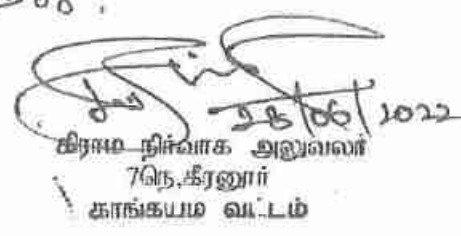 28/06/2022
கிராம நிர்வாக அலுவலர்
7நெ.கீரனூர்
காங்கயம் வட்டம்